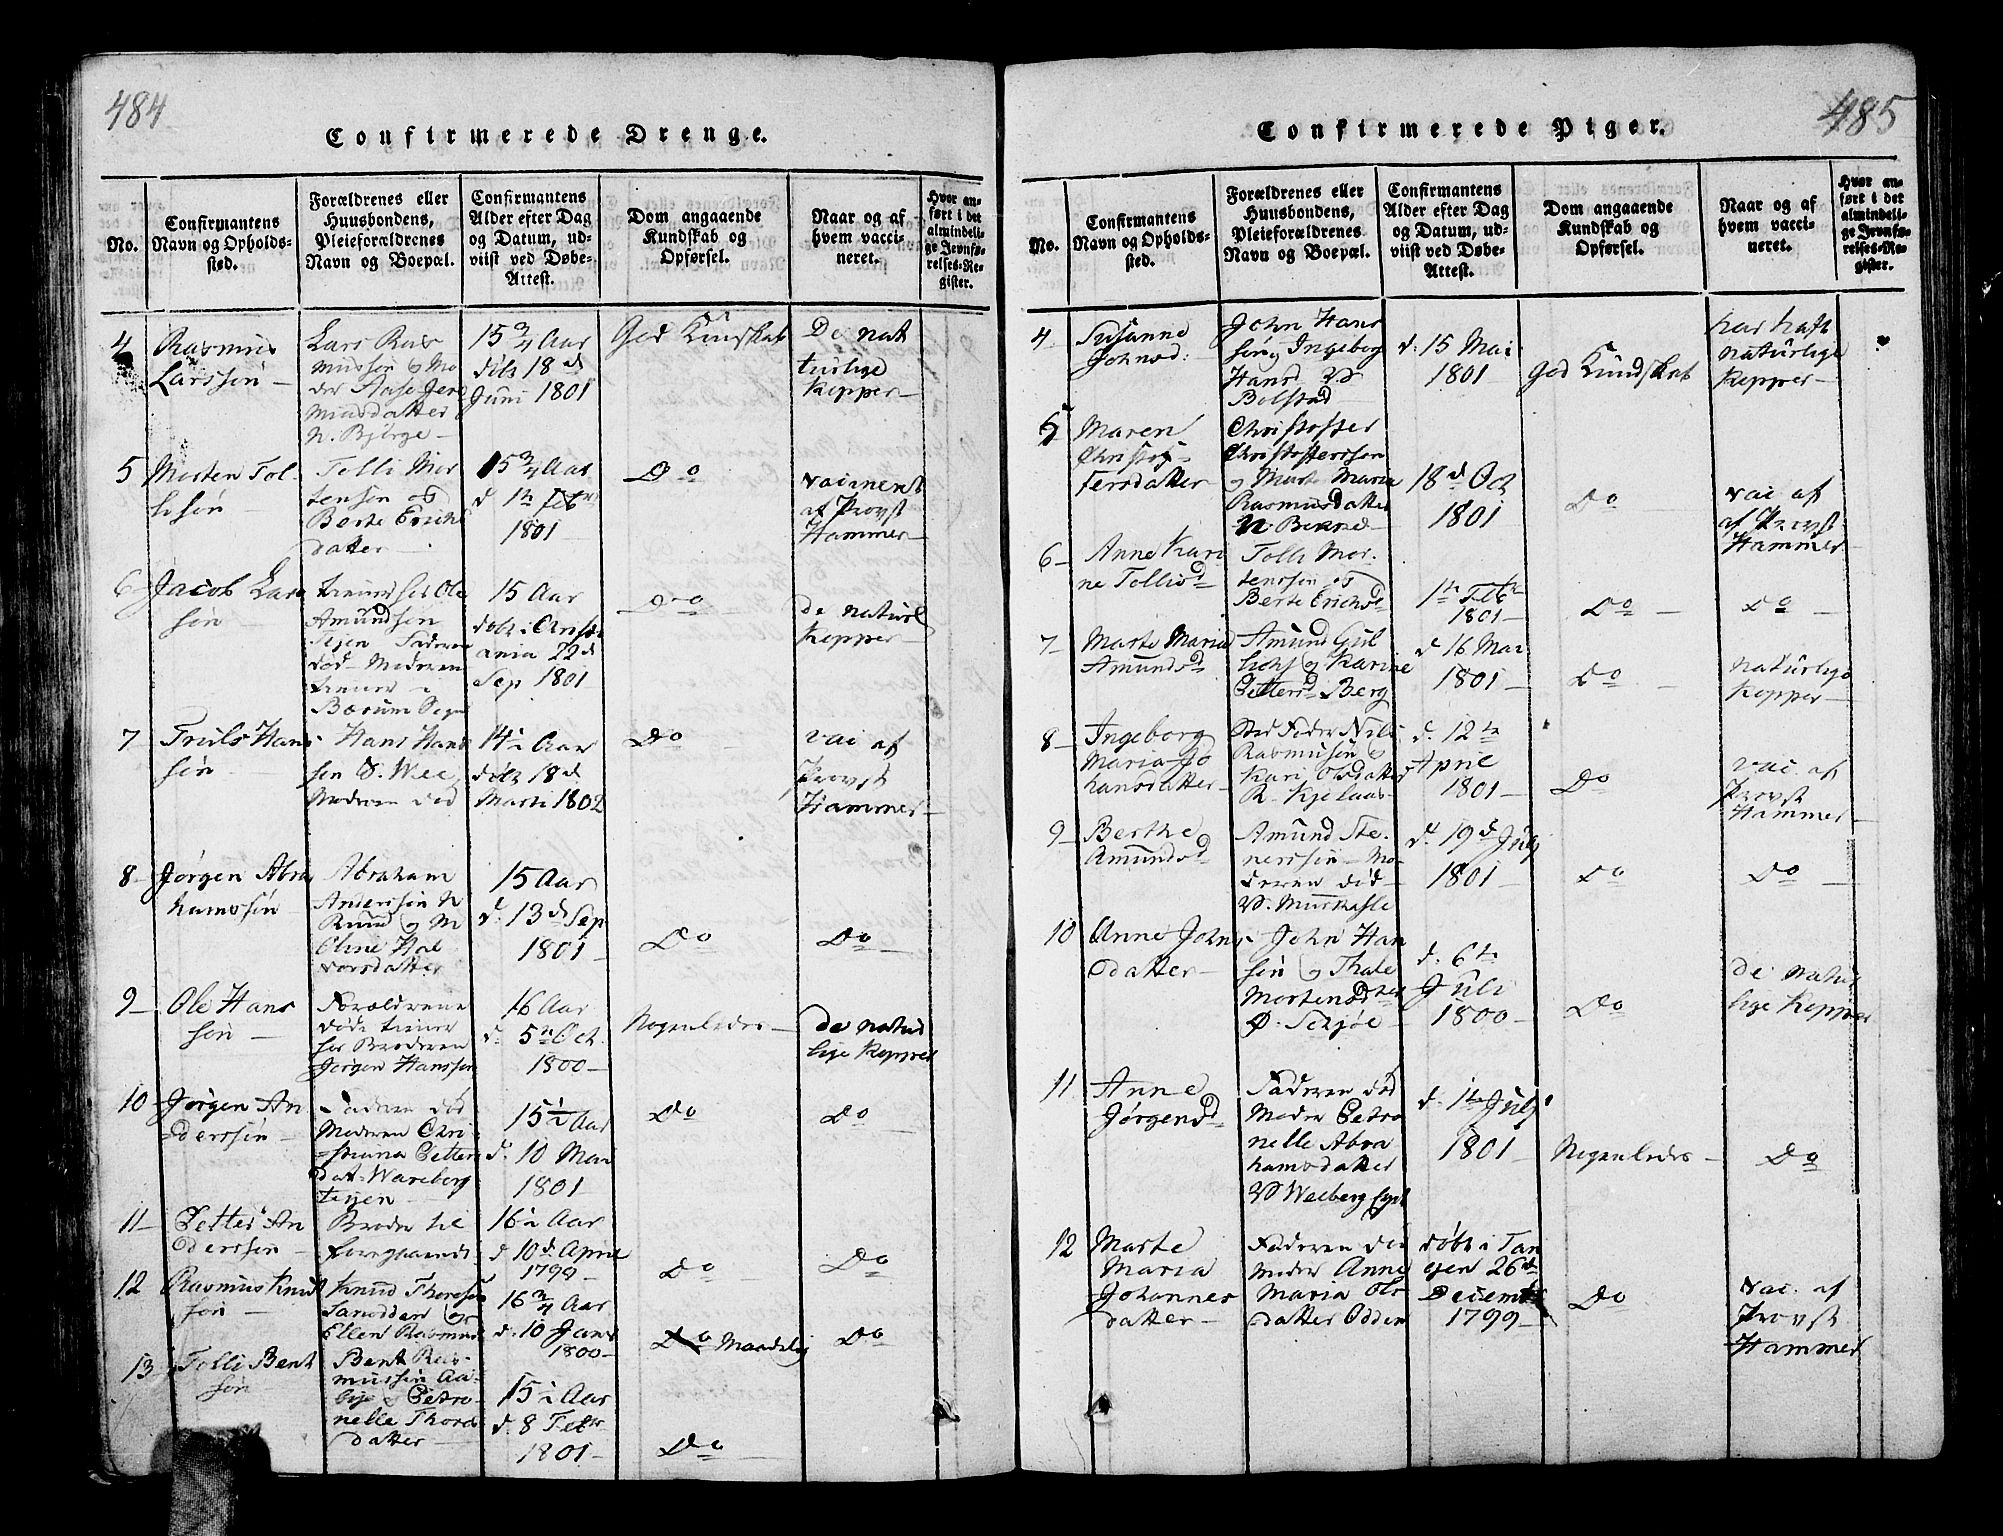 484
Confirmerede Drenge.
No.
Confirmantens
Navn og Opholds-
sted.
Forældrenes eller
Huusbondens,
Pleieforældrenes
Navn og Boepæl.
Confirmantens
Alder efter Dag
og Datum, ud-
viist ved Døbe-
Attest.
Dom angaaende
Kundskab og
Opførsel.
Naar og af
hvem vacci-
neret.
Hvor an-
ført i det
almindeli-
ge Jevnfø-
relses-Re-
gister.
4
Rasmus
Larssøn
Lars Ras
mussen og Mo
der Aase Jere
miasdatter
N. Bjørge
15 3/4 Aar
døbt 18 d
Juni 1801
God Kundskab
De nat
turlige
Kopper
5
Morten Tol-
lisøn
Tolli Mor
tensøn og
Berte Erichs
datter
15 3/4 Aar
d 1te Febr
1801
Do
vaccinert
af Provst
Hammer
6
Jacob Lars
søn
tiener hos Ole
Amundsen
Faderen
død Moderen
tiener i
Bærum
15 Aar
døbt i Christi
ania 22 d
Sep 1801
Do
de naturl
Kopper
7
Truls Hans
søn
Hans Hans
søn
Moderen død
14 1/2 Aar
døbt 18 d
Marti 1802
Do
vac af
Provst
Hammer
8
Jørgen Abra
hamssøn
Abraham
Anderssøn N
Ruud og M
Eline Hal
vorsdatter
15 Aar
d. 13 d Sep
1801
Do
Do
9
Ole Hans
søn
Forældrene
døde tiener
hos Broderen
Jørgen Hanssøn
16 Aar
d. 5te Oct.
1800
Nogenledes
de natur
lige Kopper
10
Jørgen An
derssøn
Faderen død
Moderen Chri
stiana Petters
dat. Wæeberg
eyen
15 1/2 Aar
d. 10 Mai
1801
Do
Do
11
Petter An
derssøn
Broder til
foregaaende
16 1/2 Aar
d 10 d April
1799
Do
Do
12
Rasmus Knud
søn
Knud Thoresøn
Sanodden og
Ellen Rasmusd
16 3/4 Aar
d. 10 Janr
1800
Do Maadelig
Do
13
Tolli Bent
søn
Bent Ras-
mussøn
og Petro
nelle Thores
datter
15 1/2 Aar
d 8 Febr
1801
Do
485
Confirmerede Piger.
No.
Confirmantens
Navn og Opholds-
sted.
Forældrenes eller
Huusbondens,
Pleieforældrenes
Navn og Boepæl.
Confirmantens
Alder efter Dag
og Datum, ud-
viist ved Døbe-
Attest.
Dom angaaende
Kundskab og
Opførsel.
Naar og af
hvem vacci-
neret.
Hvor an-
ført i det
almindeli-
ge Jevnfø-
relses-Re-
gister.
4
Susanne
Johnsd:
John Hans
søn og Ingeborg
Hansd
Bolstad
d. 15 Mai
1801
God Kundskab
har haft
naturlige
Kopper
5
Maren
Christof
fersdatter
Christoffer
Christoffersen
og Marte Maria
Rasmusdatter
N.
18 d Oct
1801
Do
vac af
af Provst
Hammer
6
Anne Kari
ne Tollisd
Tolli Mor.
tenssøn og
Berte Erichsd
1te Febr
1801
Do
Do
7
Marte Maria
Amundsd
Amund Gul
lichs og Karine
Pettersd Berg
d 16 Mai
1801
Do
naturlige
Kopper
8
Ingeborg
Maria Jo
hansdatter
Sted Fader Nils
Rasmusøn og
Kari Olsdatter
d. 12te
April
1801
Do
vac. af
Provst
Hammer
9
Berthe
Amundsd
Amund Ste-
nerssøn Mo-
deren død
d. 19 d July
1801
Do
Do
10
Anne Johns
datter
John Han
søn og Thale
Mortensdter
Ø. Schjøe
d. 6te
Juli
1800
Do
de natur
lige Kopper
11
Anne
Jørgensd
Faderen død
Moder Petro
nelle Abra
hamsdatter
d. 1te July
1801
Nogenledes
Do
12
Marte
Maria
Johannes
datter
Faderen død
moder Anne
Maria Ols
datter Odden
døbt i Tan
gen 26 d
Decembr
1799
Do
vac. af
Provst
Hammer